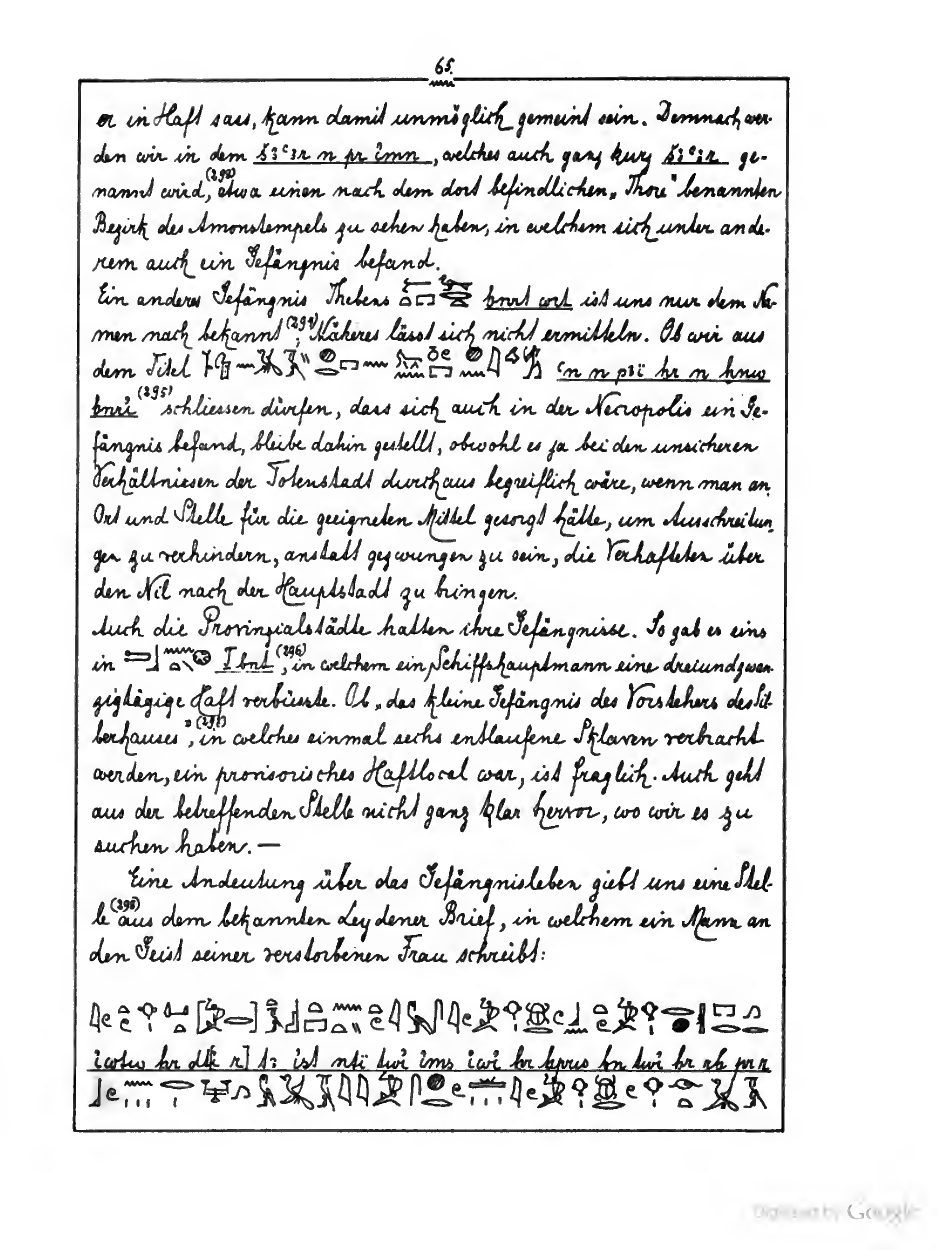 65.
er in Haft sass, kann damit unmöglich gemeint sein. Demnach wer-
den wir in dem š3ꜥ3r n pr imn, welches auch ganz kurz š3ꜥ3r ge-
nannt wird,(293) etwa einen nach dem dort befindlichen „Thore" benannten
Bezirk des Amonstempels zu sehen haben, in welchem sich unter ande-
rem auch ein Gefängnis befand.
Ein anderes Gefängnis Thebens ist uns nur dem Na-
men nach bekannt(294); Näheres lässt sich nicht ermitteln. Ob wir aus
dem Titel
(295) schliessen dürfen, dass sich auch in der Necropolis ein Ge-
fängnis befand, bleibe dahin gestellt, obwohl es ja bei den unsicheren
Verhältnissen der Totenstadt durchaus begreiflich wäre, wenn man an
Ort und Stelle für die geeigneten Mittel gesorgt hätte, um Ausschreitun,
gen zu verhindern, anstatt gezwungen zu sein, die Verhafteten über
den Nil nach der Hauptstadt zu bringen.
Auch die Provinzialstädte hatten ihre Gefängnisse. So gab es eins
in (296), in welchem ein Schiffshauptmann eine dreiundzwan-
zigtägige Haft verbüsste. Ob „das kleine Gefängnis des Vorstehers des Sil-
berhauses",(297) in welches einmal sechs entlaufene Sklaven verbracht
werden, ein provisorisches Haftlocal war, ist fraglich. Auch geht
aus der betreffenden Stelle nicht ganz klar hervor, wo wir es zu
suchen haben. —
Eine Andeutung über das Gefängnisleben giebt uns eine Stel-
le(298) aus dem bekannten Leydener Brief, in welchem ein Mann an
den Geist seiner verstorbenen Frau schreibt:
Digitized by Google